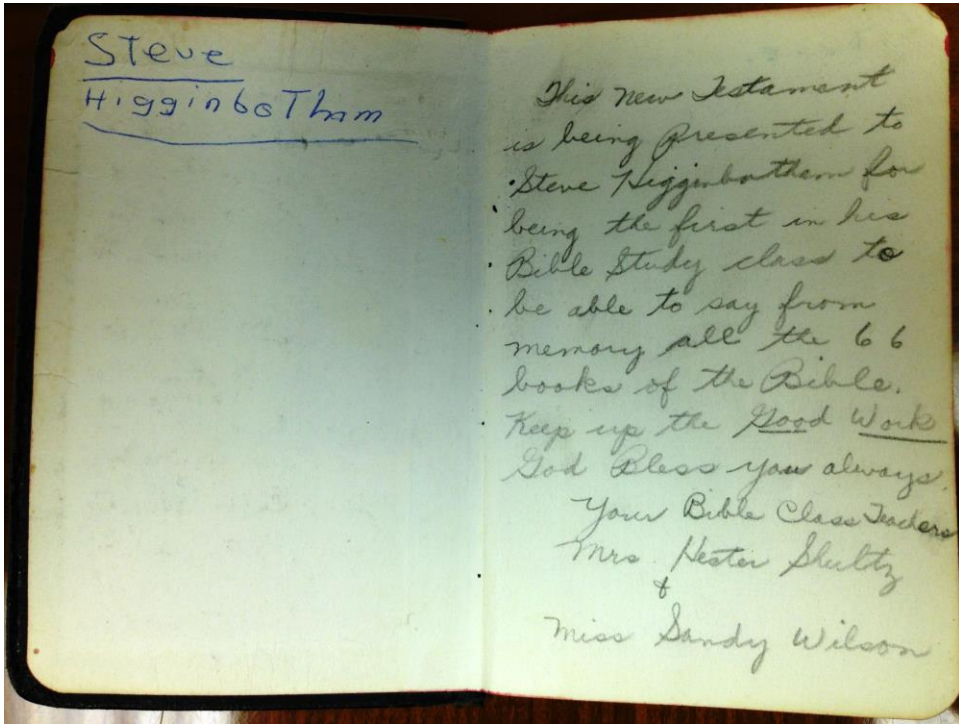 Steve
HigginboTham
This New Testament
is being presented to
Steve Higginbotham for
being the first in his
Bible Study class to
be able to say from
memory all the 66
books of the Bible.
Keep up the Good Work
God Bless you always.
Your Bible Class Teachers
Mrs. Hester Shultz
&
Miss Sandy Wilson